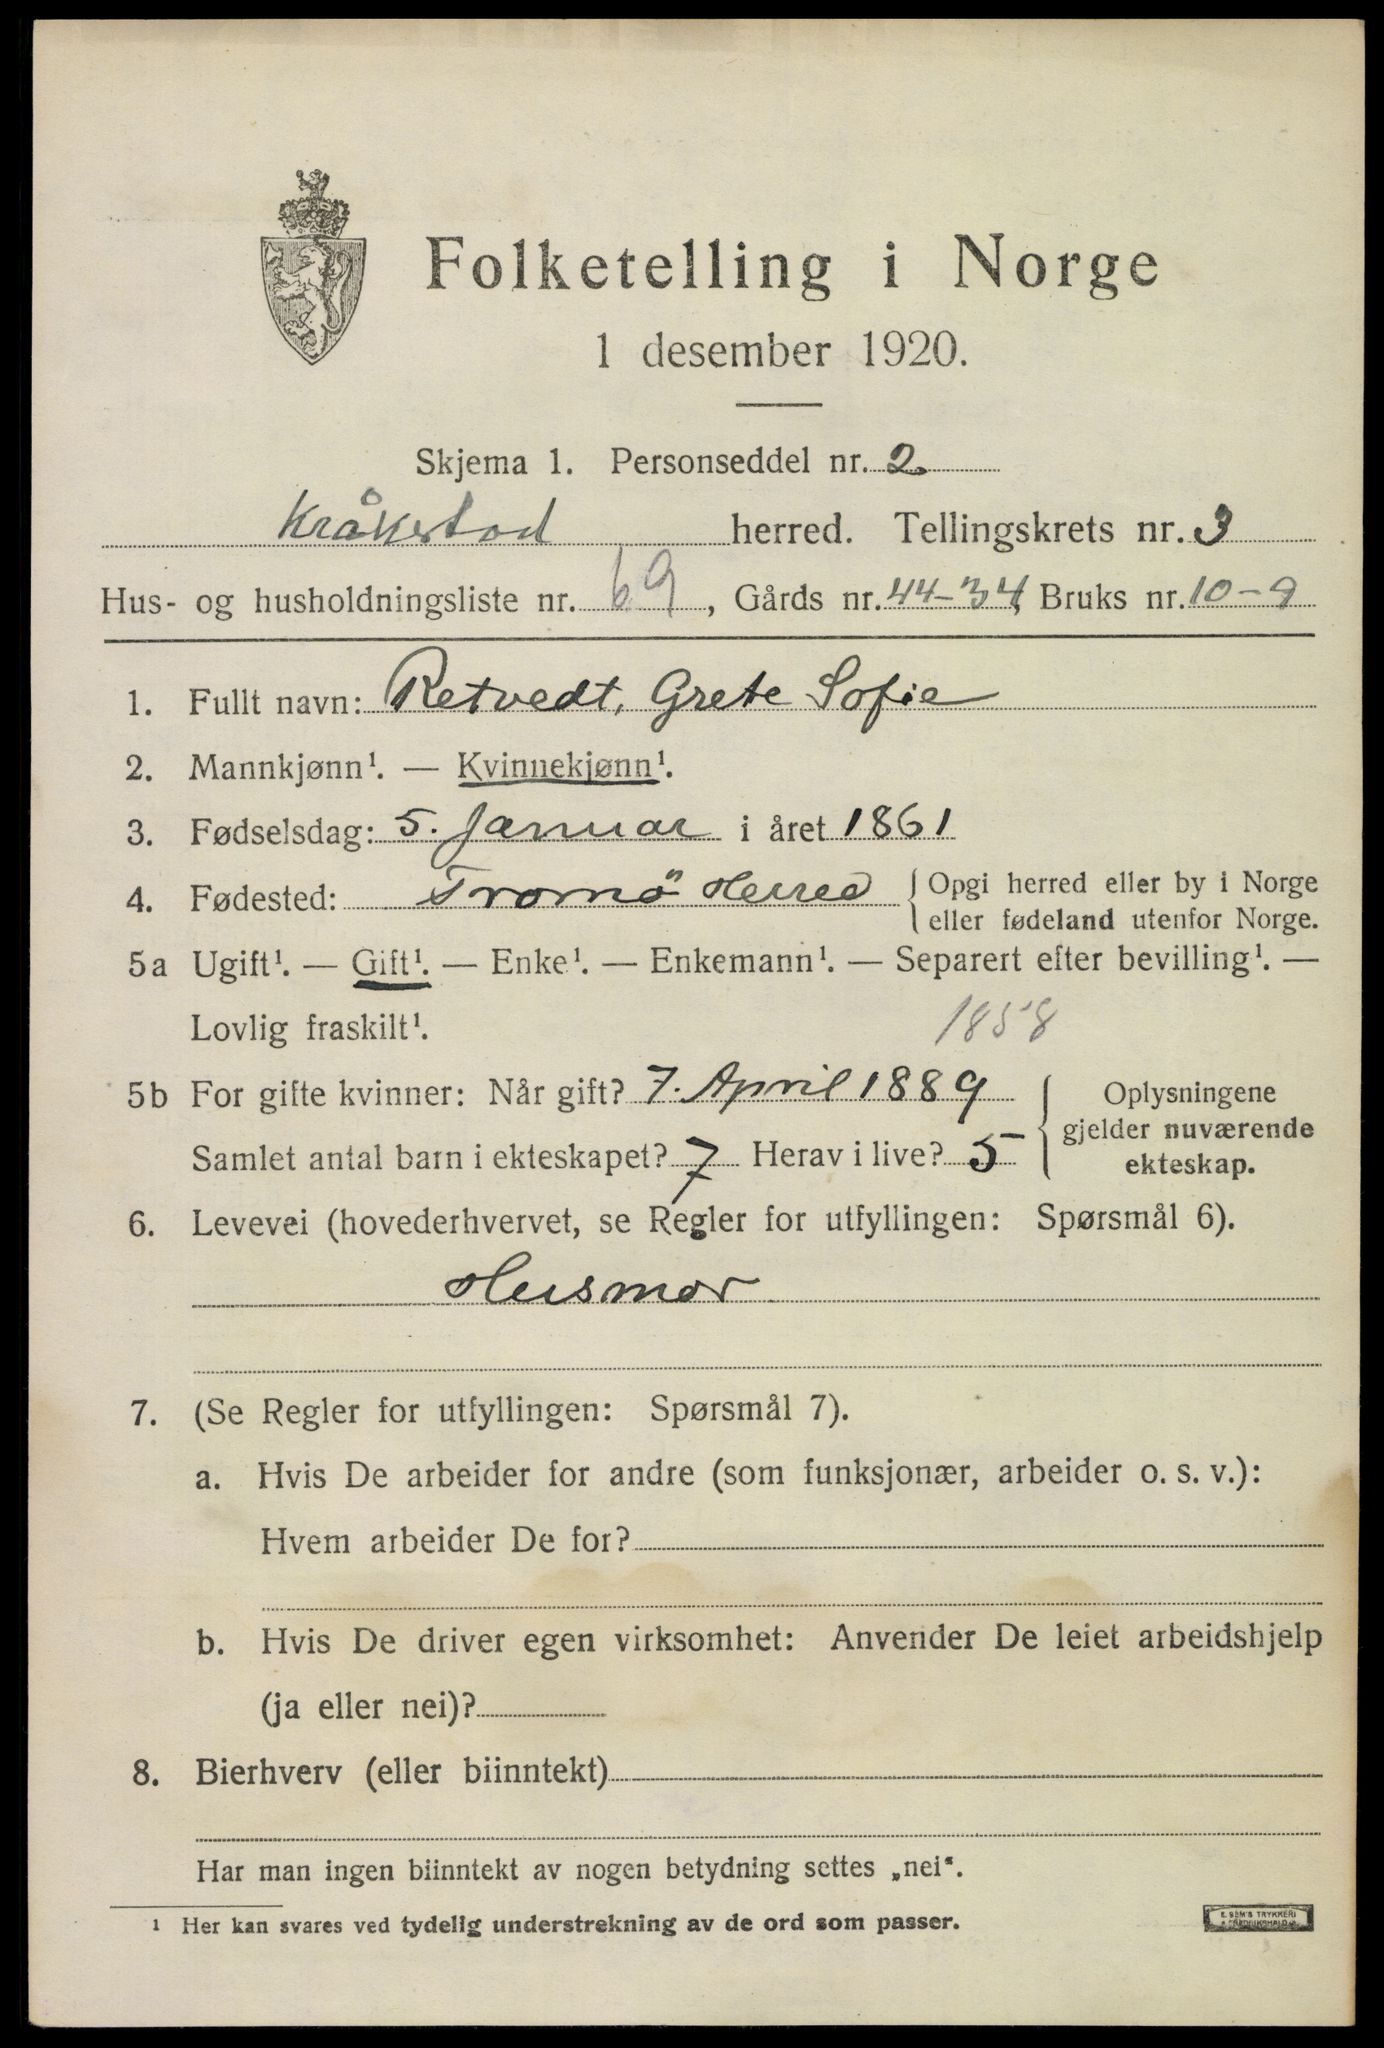 Folketelling i Norge
1 desember 1920.
Skjema 1. Personseddel nr. 2
Kråkstad herred. Tellingskrets nr. 3
Hus- og husholdningsliste nr. 69, Gårds nr. 44-34, Bruks nr. 10-9
1. Fullt navn: Retvedt, Grete Sofie
2. Mannkjønn¹. — Kvinnekjønn¹.
3. Fødselsdag: 5. Januar i året 1861
4. Fødested: Tromö Herred { Opgi herred eller by i Norge
eller fødeland utenfor Norge.
5a Ugift¹. — Gift¹. — Enke¹. — Enkemann¹. — Separert efter bevilling¹. —
Lovlig fraskilt¹. 1858
5b For gifte kvinner: Når gift? 7. April 1889 { Oplysningene
gjelder nuværende
Samlet antal barn i ekteskapet? 7 Herav i live? 5 ekteskap.
6. Levevei (hovederhvervet, se Regler for utfyllingen: Spørsmål 6).
Husmor
7. (Se Regler for utfyllingen: Spørsmål 7).
a. Hvis De arbeider for andre (som funksjonær, arbeider o. s. v.):
Hvem arbeider De for?
b. Hvis De driver egen virksomhet: Anvender De leiet arbeidshjelp
(ja eller nei)?
8. Bierhverv (eller biinntekt)
Har man ingen biinntekt av nogen betydning settes „nei“.
¹ Her kan svares ved tydelig understrekning av de ord som passer.
E. SEM'S TRYKKERI
FREDRIKSHALD